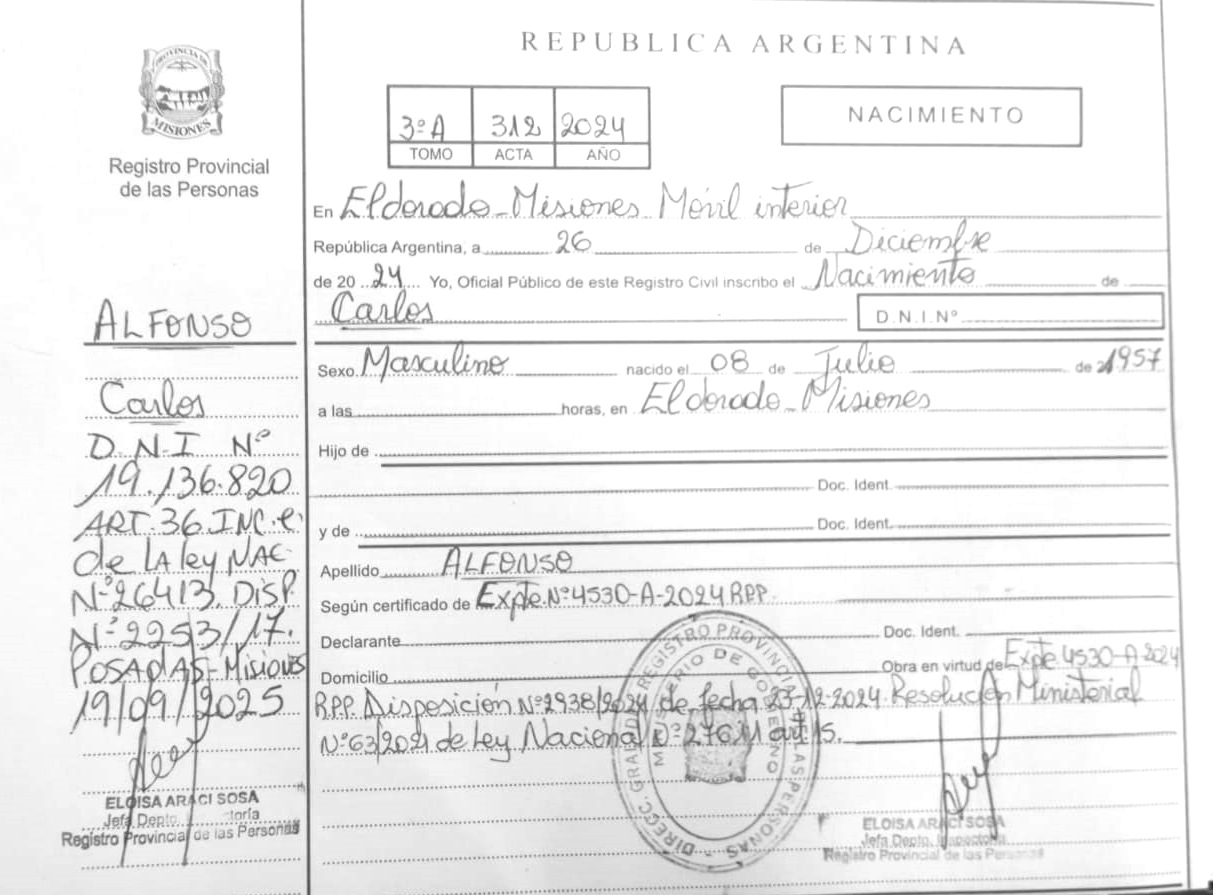 PROVINCIA DE
MISIONES
Registro Provincial
de las Personas
ALFONSO
Carlos
D.N.I Nº
19.136.820
ART.36.INC.c
de LA ley NAC
Nº26413. DISP.
Nº2253/17.
POSADAS-Misiones
19/09/2025
ELOISA ARACI SOSA
Jefa Depto. toría
Registro Provincial de las Personas
REPUBLICA ARGENTINA
3ºA 312 2024
TOMO ACTA AÑO
NACIMIENTO
En Eldorado-Misiones Móvil interior
República Argentina, a 26 de Diciembre
de 20 24 Yo, Oficial Público de este Registro Civil inscribo el Nacimiento de
Carlos D.N.I.Nº
Sexo Masculino nacido el 08 de Julio de 1957
a las horas, en Eldorado-Misiones
Hijo de
Doc. Ident.
y de Doc. Ident.
Apellido ALFONSO
Según certificado de Expte.Nº4530-A-2024 RPP.
Declarante Doc. Ident.
Domicilio Obra en virtud de Expte 4530-A-2024
RPP. Disposición Nº2938/2024 de fecha -12-2024. Resolución Ministerial
Nº63/2021 de ley Nacional Nº27611 art 15.
DIREC. GRAL. DEL REGISTRO PROVINCIAL DE LAS PERSONAS
MINISTERIO DE GOBIERNO
ELOISA ARACI SOSA
Jefa Depto. Inspectoría
Registro Provincial de las Personas